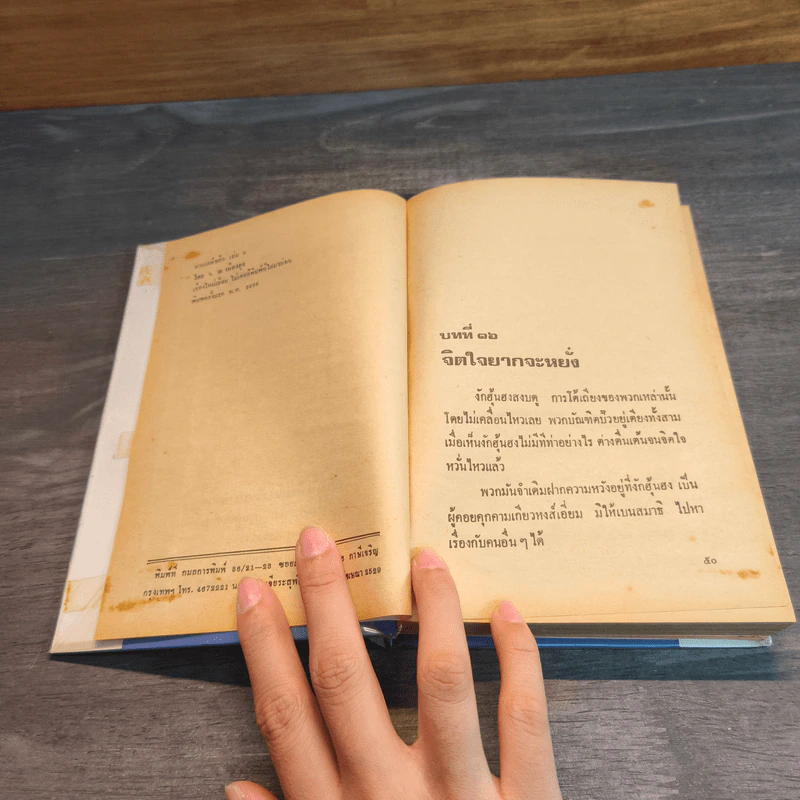 โดย ว. ณ เมืองลุง
พ.ศ.
พิมพ์ที่ กมลการพิมพ์ 86/21-23 ซอย ภาษีเจริญ
กรุงเทพฯ โทร. 4672221 2529
บทที่ ๑๖
จิตใจยากจะหยั่ง
งักฮุ้นฮงสงบดู การโต้เถียงของพวกเหล่านั้น
โดยไม่เคลื่อนไหวเลย พวกบัณฑิตป๊วยยู่เตียงทั้งสาม
เมื่อเห็นงักฮุ้นฮงไม่มีทีท่าอย่างไร ต่างตื่นเต้นจนจิตใจ
หวั่นไหวแล้ว
พวกมันจำเดิมฝากความหวังอยู่ที่งักฮุ้นฮง เป็น
ผู้คอยคุกคามเกียวหงส์เอี่ยม มิให้เบนสมาธิ ไปหา
เรื่องกับคนอื่น ๆ ได้
๕๐